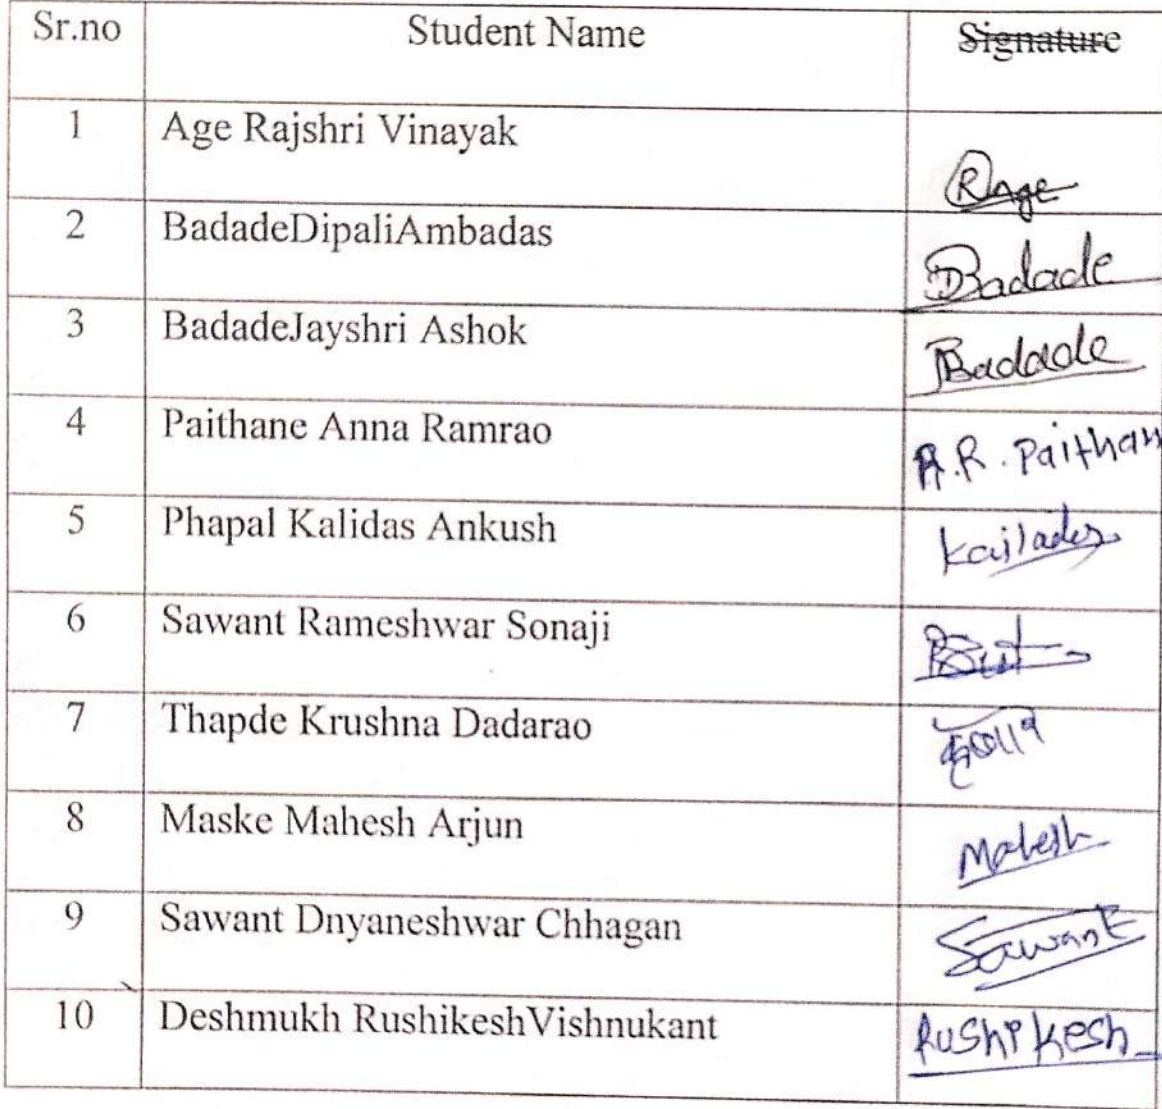 Sr.no Student Name Signature
1 Age Rajshri Vinayak
RAge
2 BadadeDipaliAmbadas
DBadade
3 BadadeJayshri Ashok
JBadade
4 Paithane Anna Ramrao
A.R. Paithan
5 Phapal Kalidas Ankush
6 Sawant Rameshwar Sonaji
7 Thapde Krushna Dadarao
8 Maske Mahesh Arjun
Mahesh
9 Sawant Dnyaneshwar Chhagan
Sawant
10 Deshmukh RushikeshVishnukant
Rushikesh